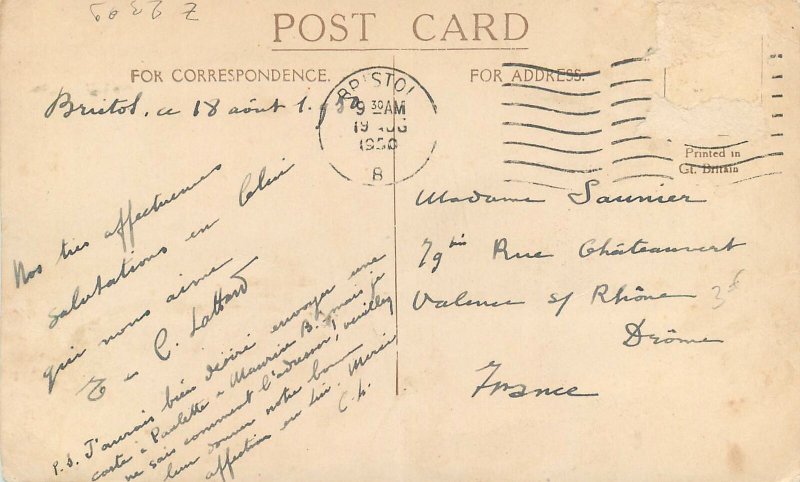 7 2329
POST CARD
FOR CORRESPONDENCE.
FOR ADDRESS.
Bristol, ce 18 août 1950
BRISTOL
9 30 AM
19 AUG
1950
B
Printed in
Gt. Britain
Nos très affectueuses
salutations en Celui
qui nous aime
E et C. Lattard
P.S. J'aurais bien désiré envoyer une
carte à Paulette et Maurice B. mais je
ne sais comment l'adresser; veuillez
leur donner notre bonne
affection en Lui. Merci
C. L.
Madame Saunier
79 bis Rue Châteauvert
Valence s/ Rhône
Drôme
France